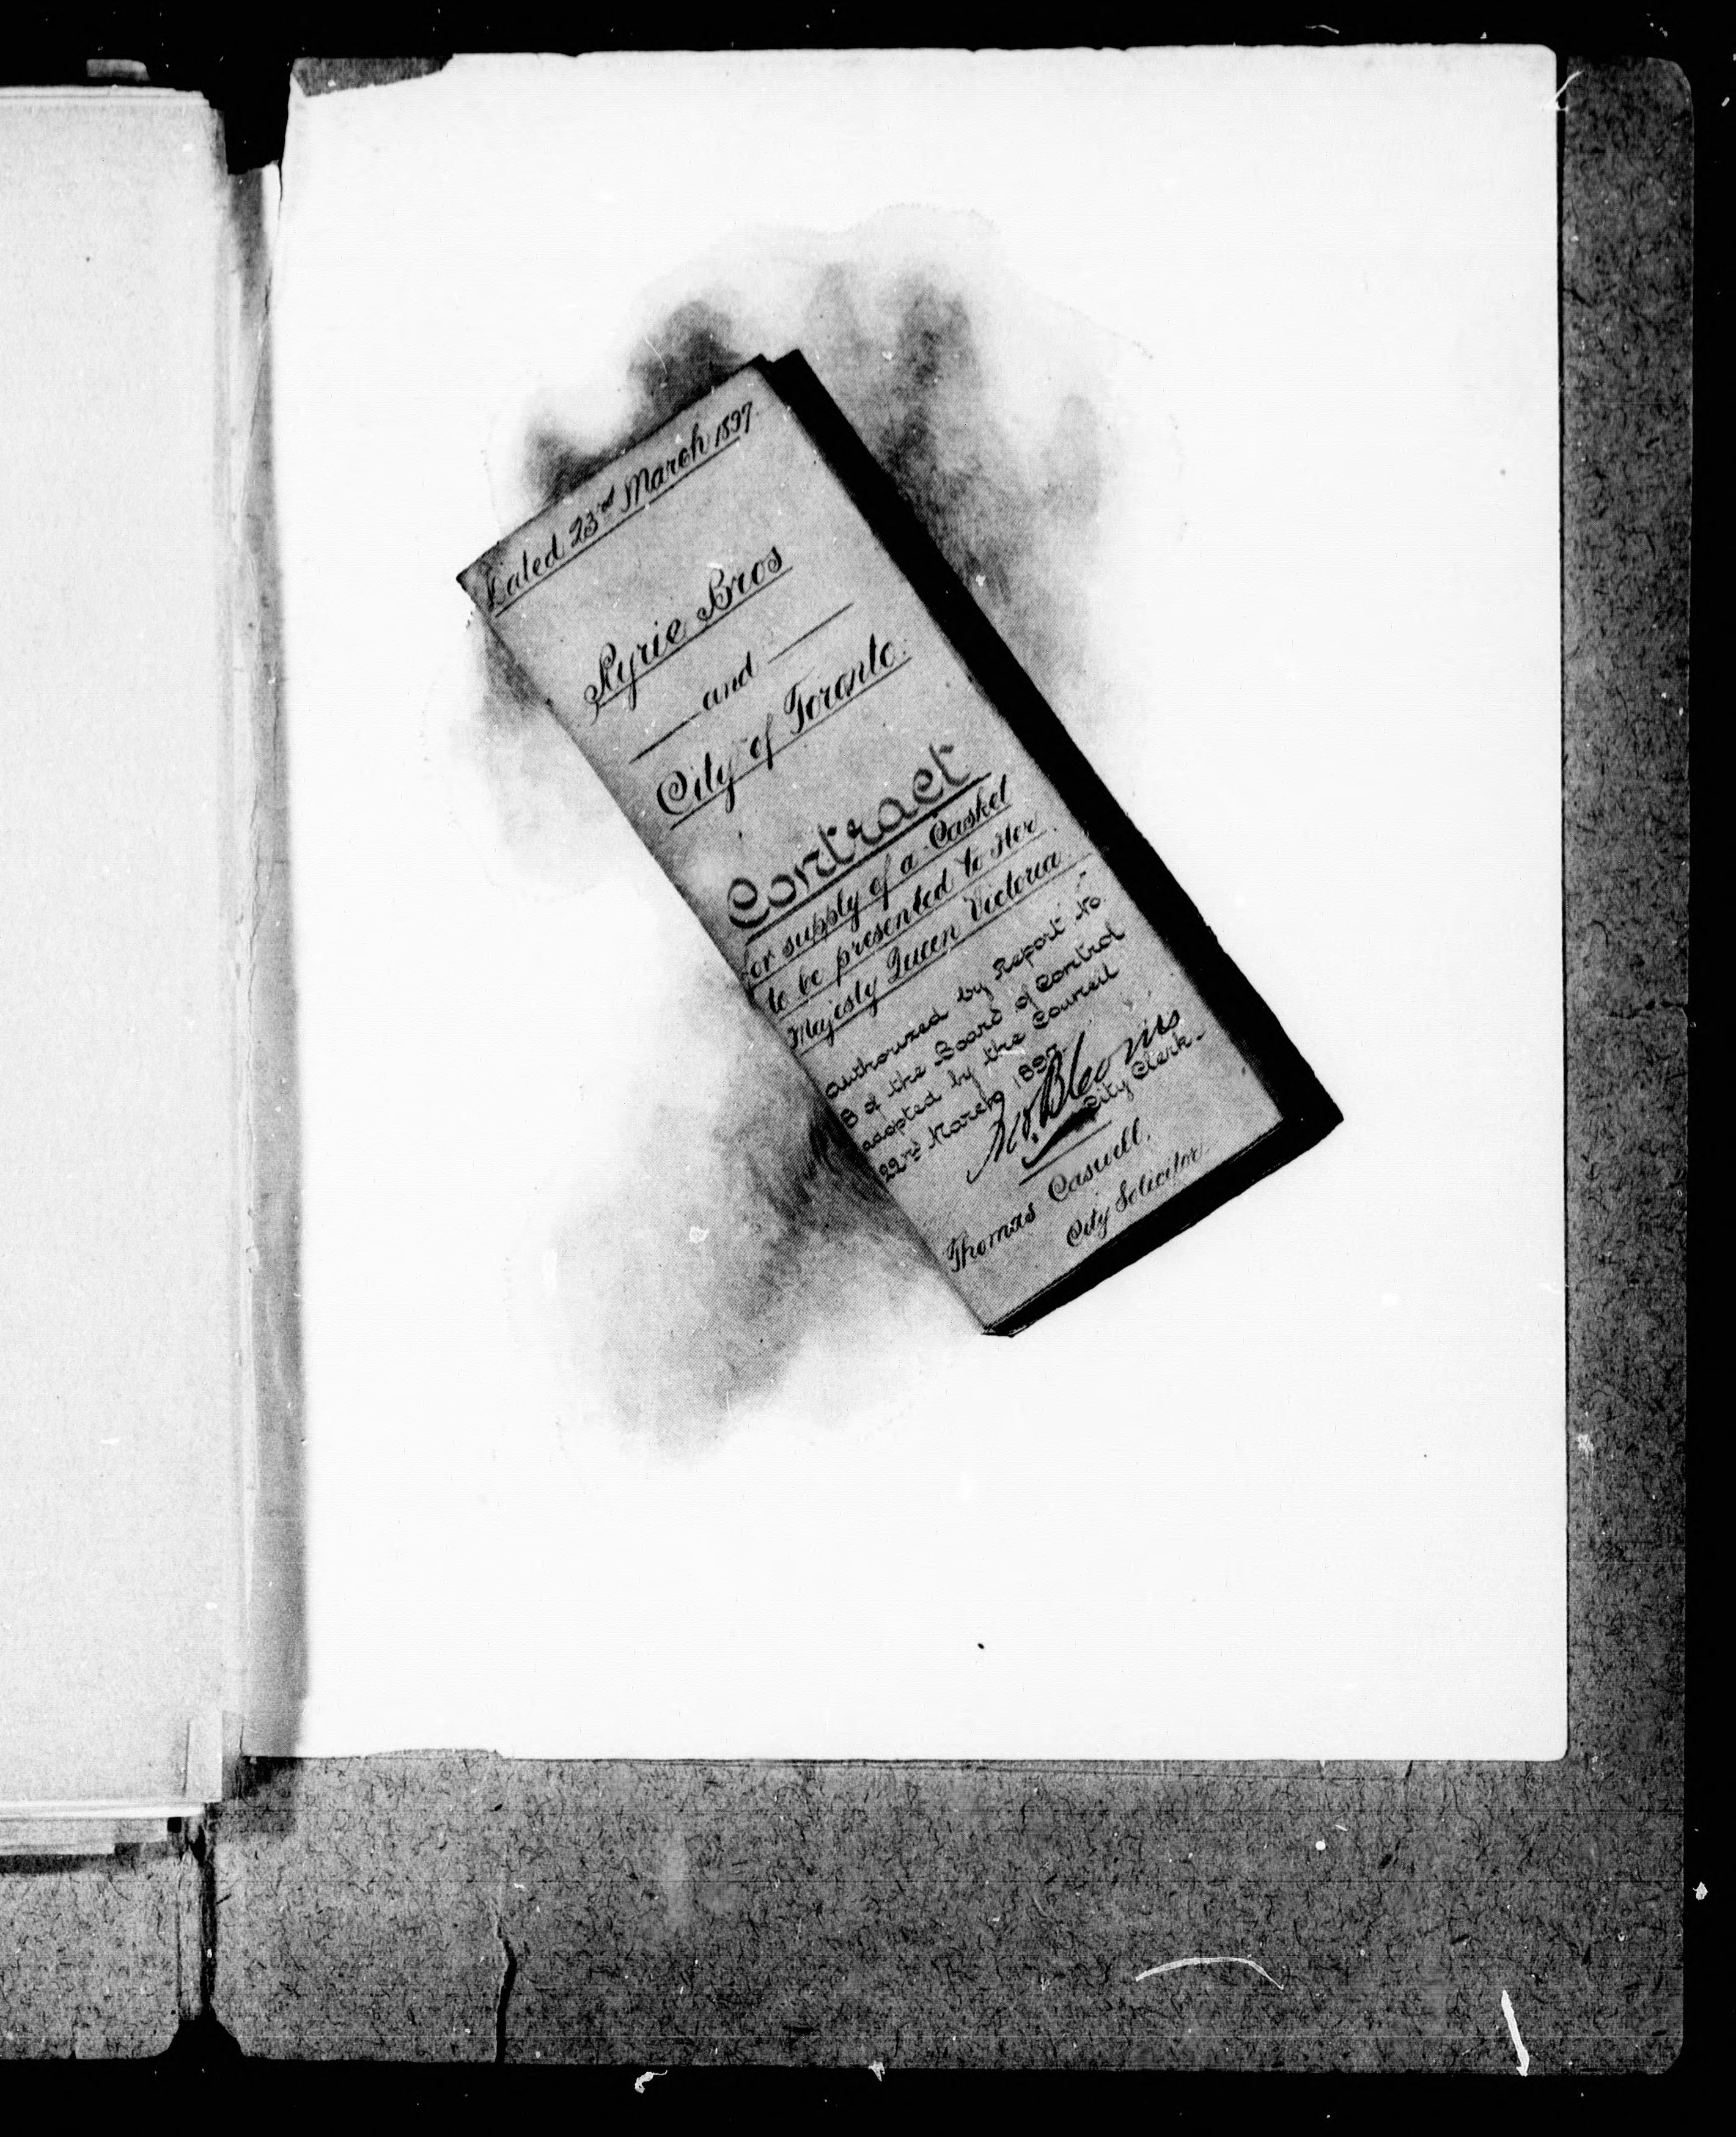 Dated 23rd March 1897
Ryrie Bros
and
City of Toronto.
Contract
for supply of a Casket
to be presented to Her
Majesty Queen Victoria
authorized by Report No.
8 of the Board of Control
adopted by the Council
22nd March 1897
City Clerk.
Thomas Caswell,
City Solicitor